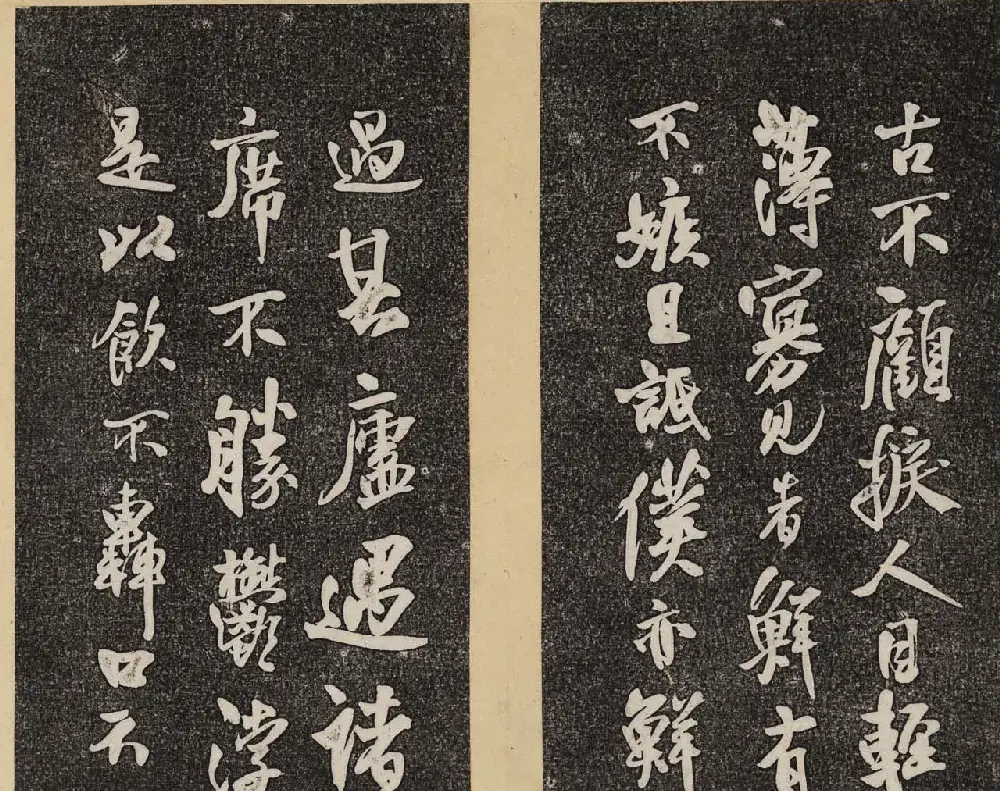 古不顧捩人目輕
薄寡見者鮮有
不嫉且詆僕亦鮮
過其廬遇諸
席不勝鬱浡
是以飲不轟口不